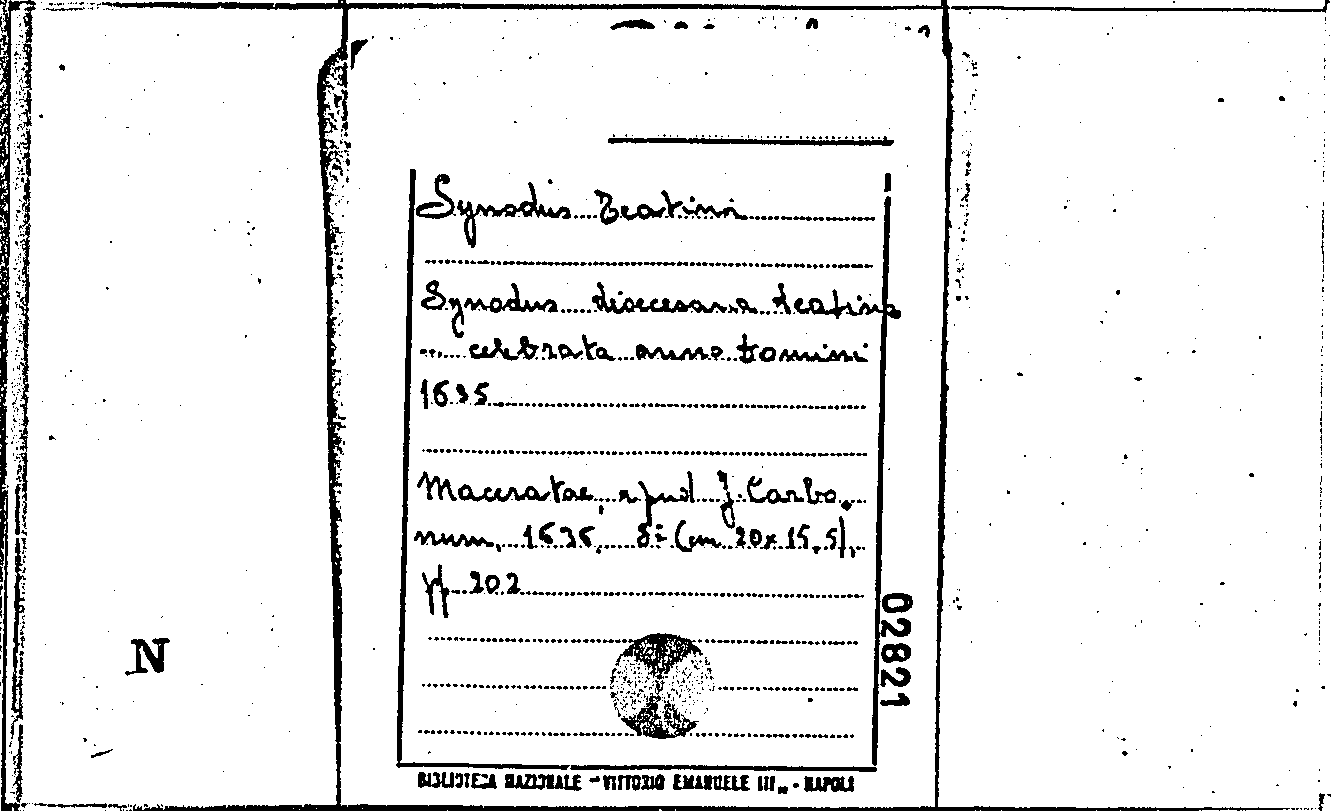 Synodus Teatina
Synodus diocesana teatina
... celebrata anno Domini
1635
Maceratae, apud J. Carbo.
num, 1636, 8º (cm 20x15,5),
pp 202
N
02821
BIBLIOTECA NAZIONALE "VITTORIO EMANUELE III" - NAPOLI